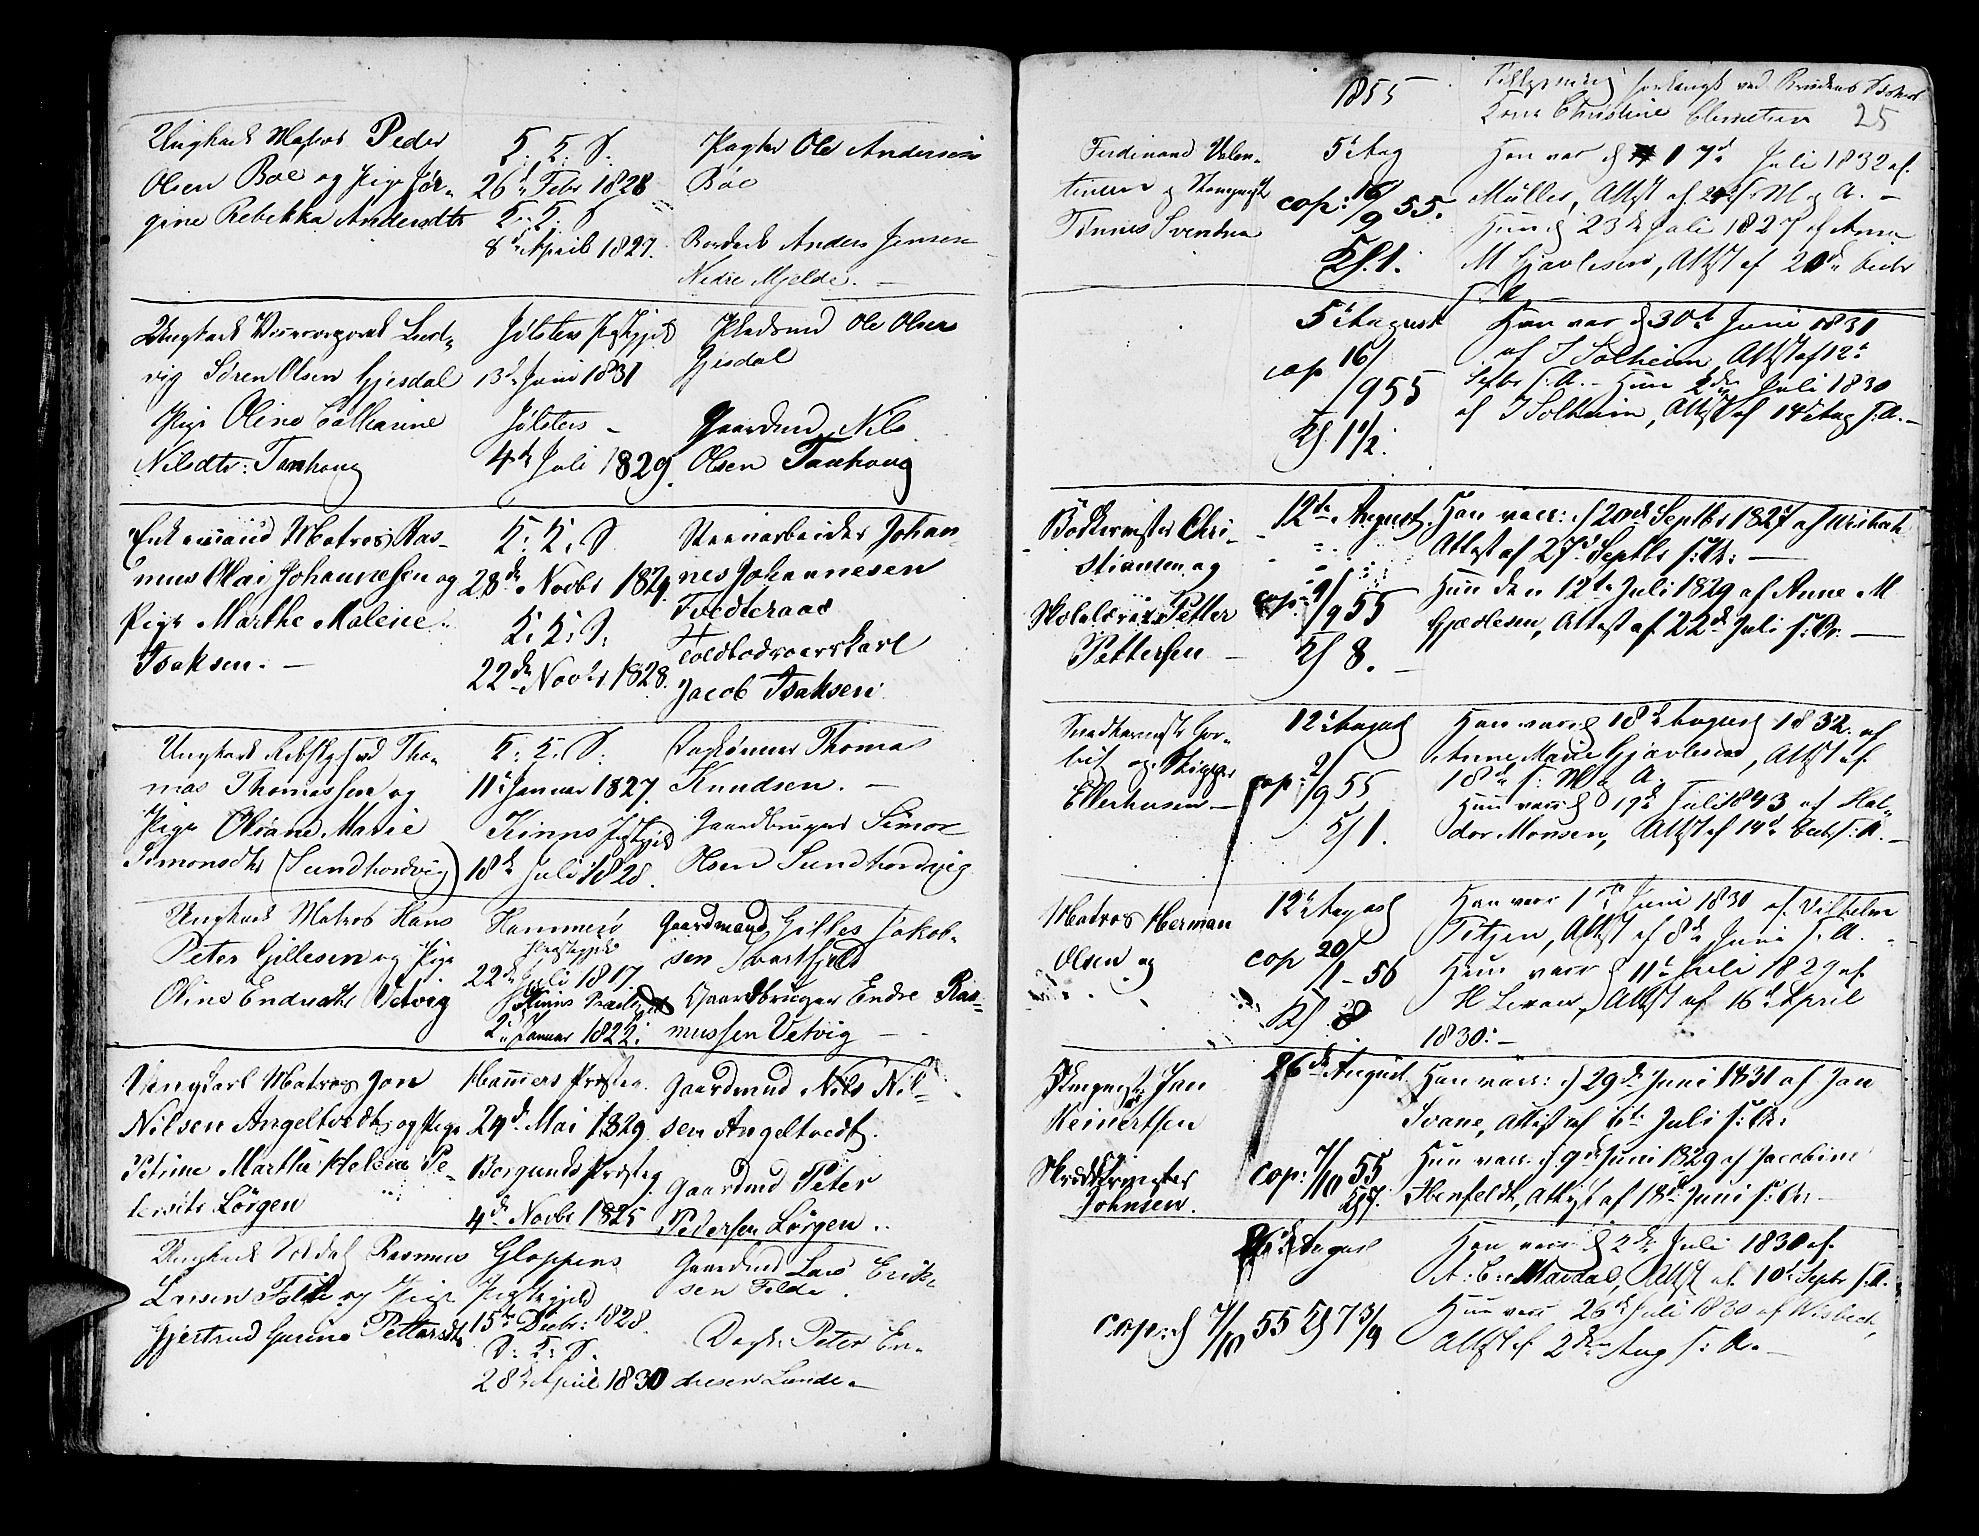 Ungkarl Matros Peder
Olsen Boe og Pige Jør-
gine Rebekka Andersdtr
K: K: S.
26de Febr 1828
K: K: S
8de April 1827.
Pagter Ole Andersen
Boe
Anders Jensen
Nedre Mjelde. —
Ungkarl Lud-
vig Søren Olsen Gjesdal
Pige Oline Cathrine
Nilsdtr: Tonhoug
Jølsters Pgjeld
13de Juni 1831
Jølsters —
4de Juli 1829.
Pladsmd Ole Olsen
Gjesdal
Gaardmd Nils
Olsen Tonhoug
Enkemand Matros Ras-
mus Olai Johannesen og
Pige Marthe Malene
Isaksen. —
K: K: S
28de Novbr 1829
K: K: S:
22de Novbr 1828.
Steenarbeider Johan-
nes Johannesen
Tvedteraas
Toldbodroerskarl
Jacob Isaksen
Ungkarl Tho-
mas Thomassen og
Pige Oliane Marie
Simonsdtr (Sundhordvig)
K: K: S.
11te Januar 1827.
Kinns Pgjeld
18de Juli 1828.
Daglønner Thomas
Knudsen. —
Gaardbruger Simon
Olsen Sundhordvig
Ungkarl Matros Hans
Peter Gillesen og Pige
Oline Endresdtr Vetvig
Hammersø
Præstegjeld
22de Juli 1817.
Kinns
2den Januar 1822.
Gaardmand Gilles Jakob-
sen Svartfjeld
Gaardbruger Endre Ras-
mussen Vetvig —
Ungkarl Matros Jon
Nilsen Angeltvedt, og Pige
Petrine Marthe Helene Pe-
tersdtr Lørgen
Hammers Præsteg.
24de Mai 1829
Borgunds Præsteg
4de Novbr 1825
Gaardmd Nils Nil-
sen Angeltvedt.
Gaardmd Peter
Pedersen Lørgen.
Ungkarl Soldat Rasmus
Larsen Felde og Pige
Gjertrud Gurine Pettersdtr
Gloppens
Pgtgjeld
15de Decbr: 1828.
S: K: S.
28de April 1830
Gaardmd Lars Erik-
sen Felde.
Dagl: Peter En-
dresen Lunde —
1855
Tillysning forlangt ved Brudens
Christine Clemetsen
25
Ferdinand Valen-
tinsen og
Tønnes Svendsen
5te Aug
cop: 16/9 55.
Ks. 1.
Han var d 17de Juli 1832 af
Müller, Attest af s: M og A. —
Hun d 23de Juli 1827 af Anne
M Gjævlesen, Attest af 20de Octbr
s: A
5te August
cop 16/9 55
Ks 1 1/2.
Han var d 30te Juni 1831
af J Solheim, Attest af 12te
Septbr s: A. — Hun 2den Juli 1830
af J Solheim, Attest af 14de Aug s: A. —
Bødkermester Chri-
stiansen og
Skolelærer Petter
Pettersen —
12te August.
cop: 9/9 55
Ks 8. —
Han vacc: d 20de Septbr 1827 af Wisbech
Attest af 27de Septbr s: A: —
Hun den 12te Juli 1829 af Anne M
Gjævlesen, Attest af 22de Juli s: A. —
og Skipper
Ellerhusen —
12te August
cop: 2/9 55
Ks 1.
Han vacc d 18de August 1832. af
Anne Marie Gjævlesen, Attest af
18de s: M & A.
Hun vacc d 19de Juli 1843 af Hal-
dor Monsen, Attest af 14de Octbr s: A. —
Matros Herman
Olsen og
12te August
cop 20/1 - 56
Ks 8
Han vacc 1ste Juni 1830 af Vilhelm
Titjen, Attest af 8de Juni s: A.
Hun vacc d 11te Juli 1829 af
H Lexau, Attest af 16de April
1830: —
Jan
Reinertsen
Skræddermester
Johnsen.
26de August
cop: 7/10 55
Ks 7.
Han vacc: d 29de Juni 1831 af Jan
Svane, Attest af 6te Juli s: A:
Hun vacc d 9de Juni 1829 af Jacobine
Henfeldt, Attest af 18de Juni s: A: —
26de August
cop: d 7/10 55 Ks 7 3/9
Han vacc d 2den Juli 1830 af
A: C: Mardal, Attest af 10de Septbr s: A.
Hun vacc 26de Juli 1830 af Wisbech,
Attest af 2den Aug s: A. —